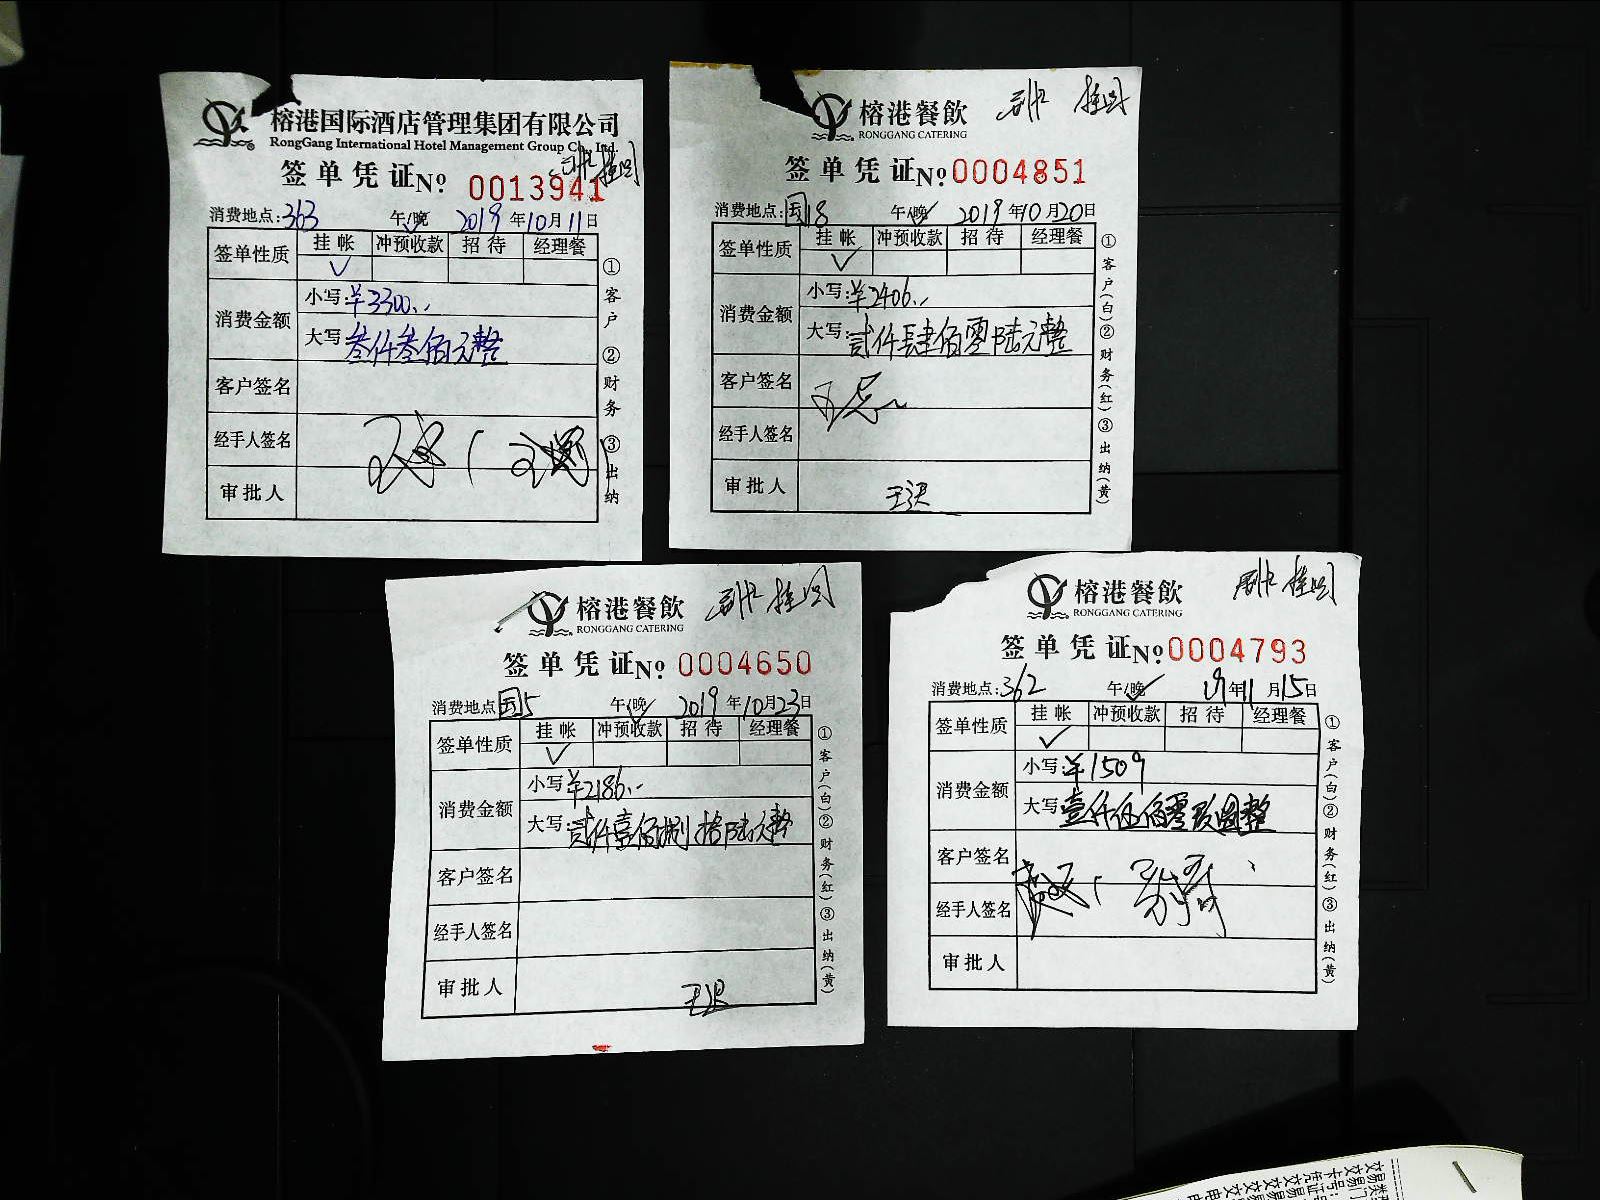 榕港国际酒店管理集团有限公司
RongGang International Hotel Management Group Co., Ltd.
挂账
签单凭证№ 0013941
消费地点:363 午/晚 2019年10月11日
签单性质 挂帐 冲预收款 招待 经理餐
✓
消费金额 小写:¥3300.-
大写:叁仟叁佰元整
客户签名
经手人签名
审批人
①客户 ②财务 ③出纳
榕港餐飲
RONGGANG CATERING
挂账
签单凭证№ 0004851
消费地点:国18 午/晚 2019年10月20日
签单性质 挂帐 冲预收款 招待 经理餐
✓
消费金额 小写:¥2406.-
大写:贰仟肆佰零陆元整
客户签名
经手人签名
审批人
①客户(白)②财务(红)③出纳(黄)
榕港餐飲
RONGGANG CATERING
挂账
签单凭证№ 0004650
消费地点 国5 午/晚 2019年10月23日
签单性质 挂帐 冲预收款 招待 经理餐
✓
消费金额 小写 ¥2186.-
大写:贰仟壹佰捌拾陆元整
客户签名
经手人签名
审批人
①客户(白)②财务(红)③出纳(黄)
榕港餐飲
RONGGANG CATERING
挂账
签单凭证№ 0004793
消费地点:362 午/晚 19年11月15日
签单性质 挂帐 冲预收款 招待 经理餐
✓
消费金额 小写:¥1509
大写:壹仟伍佰零玖圆整
客户签名
经手人签名
审批人
①客户(白)②财务(红)③出纳(黄)